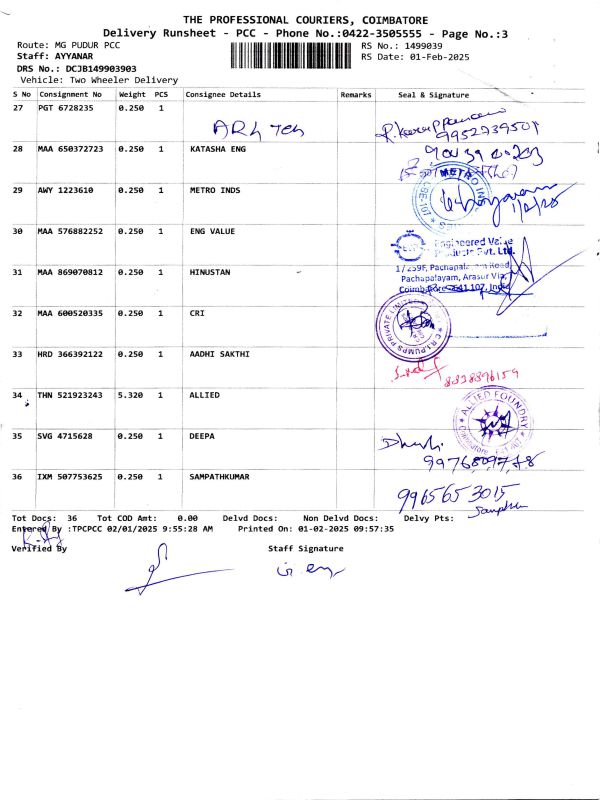 THE PROFESSIONAL COURIERS, COIMBATORE
Delivery Runsheet - PCC - Phone No.:0422-3505555 - Page No.:3
Route: MG PUDUR PCC RS No.: 1499039
Staff: AYYANAR RS Date: 01-Feb-2025
DRS No.: DCJB149903903
Vehicle: Two Wheeler Delivery
S No Consignment No Weight PCS Consignee Details Remarks Seal & Signature
27 PGT 6728235 0.250 1
9952939501
28 MAA 650372723 0.250 1 KATASHA ENG
29 AWY 1223610 0.250 1 METRO INDS
METRO IND
1/2/25
30 MAA 576882252 0.250 1 ENG VALUE
Engineered Value
Products Pvt. Ltd.
31 MAA 869070812 0.250 1 HINUSTAN
1/259F, Pachapalayam Road,
Pachapalayam, Arasur Via,
Coimbatore-641 107, India
32 MAA 600520335 0.250 1 CRI
C.R.I PUMPS PRIVATE LIMITED
33 HRD 366392122 0.250 1 AADHI SAKTHI
34 THN 521923243 5.320 1 ALLIED
ALLIED FOUNDRY
35 SVG 4715628 0.250 1 DEEPA
36 IXM 507753625 0.250 1 SAMPATHKUMAR
9965653015
Tot Docs: 36 Tot COD Amt: 0.00 Delvd Docs: Non Delvd Docs: Delvy Pts:
Entered By :TPCPCC 02/01/2025 9:55:28 AM Printed On: 01-02-2025 09:57:35
Verified By Staff Signature